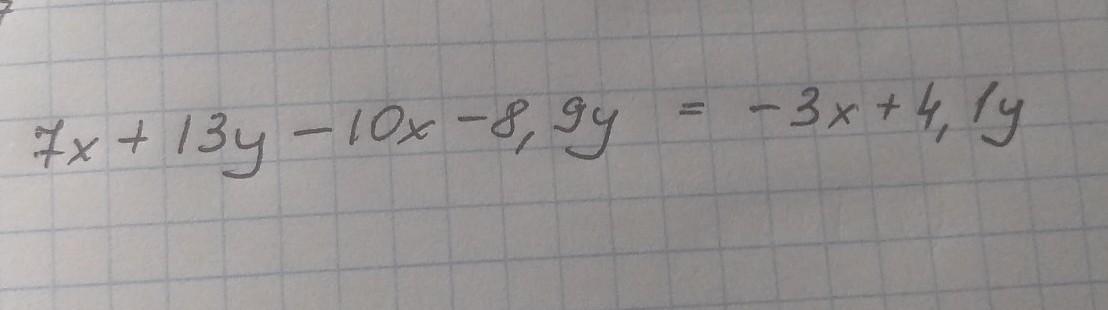 7x + 13y - 10x - 8,9y = -3x + 4,1y